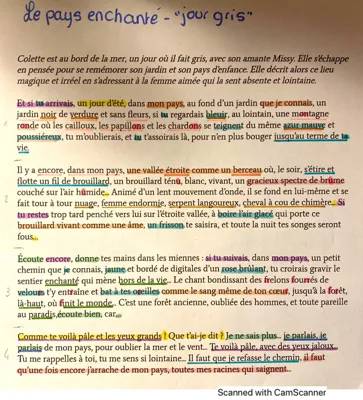 Le pays enchanté - "jour gris"
Colette est au bord de la mer, un jour où il fait gris, avec son amante Missy. Elle s'échappe
en pensée pour se remémorer son jardin et son pays d'enfance. Elle décrit alors ce lieu
magique et irréel en s'adressant à la femme aimée qui la sent absente et lointaine.
Et si tu arrivais, un jour d'été, dans mon pays, au fond d'un jardin que je connais, un
jardin noir de verdure et sans fleurs, si tu regardais bleuir, au lointain, une montagne
ronde où les cailloux, les papillons et les chardons se teignent du même azur mauve et
poussiéreux, tu m'oublierais, et tu t'assoirais là, pour n'en plus bouger jusqu'au terme de ta
vie.
Il y a encore, dans mon pays, une vallée étroite comme un berceau où, le soir, s'étire et
flotte un fil de brouillard, un brouillard ténu, blanc, vivant, un gracieux spectre de brume
2
couché sur l'air humide... Animé d'un lent mouvement d'onde, il se fond en lui-même et se
fait tour à tour nuage, femme endormie, serpent langoureux, cheval à cou de chimère... Si
tu restes trop tard penché vers lui sur l'étroite vallée, à boire l'air glacé qui porte ce
brouillard vivant comme une âme, un frisson te saisira, et toute la nuit tes songes seront
fous...
Écoute encore, donne tes mains dans les miennes : si tu suivais, dans mon pays, un petit
chemin que je connais, jaune et bordé de digitales d'un rose brûlant, tu croirais gravir le
sentier enchanté qui mène hors de la vie... Le chant bondissant des frelons fourrés de
3
velours t'y entraîne et bat à tes oreilles comme le sang même de ton cœur, jusqu'à la forêt,
là-haut, où finit le monde... C'est une forêt ancienne, oubliée des hommes, et toute pareille
au paradis, écoute bien, car...
Comme te voilà pâle et les yeux grands ! Que t'ai-je dit ? Je ne sais plus... je parlais, je
4
parlais de mon pays, pour oublier la mer et le vent... Te voilà pâle, avec des yeux jaloux...
Tu me rappelles à toi, tu me sens si lointaine... Il faut que je refasse le chemin, il faut
qu'une fois encore j'arrache de mon pays, toutes mes racines qui saignent...
Scanned with CamScanner